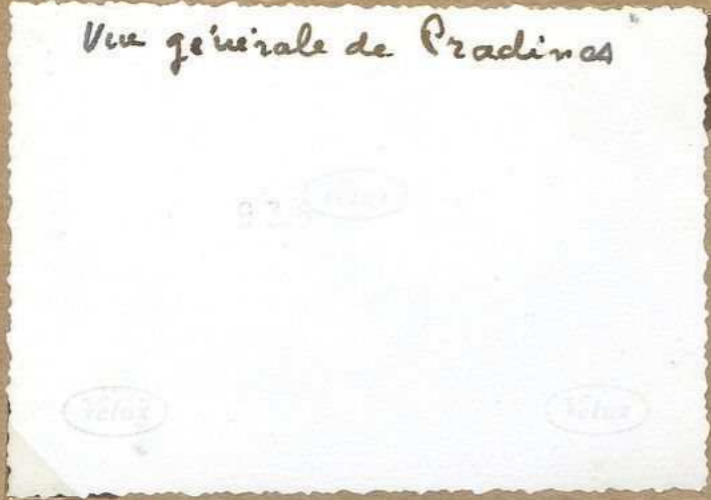 Vue générale de Pradines
Velox
Velox
Velox